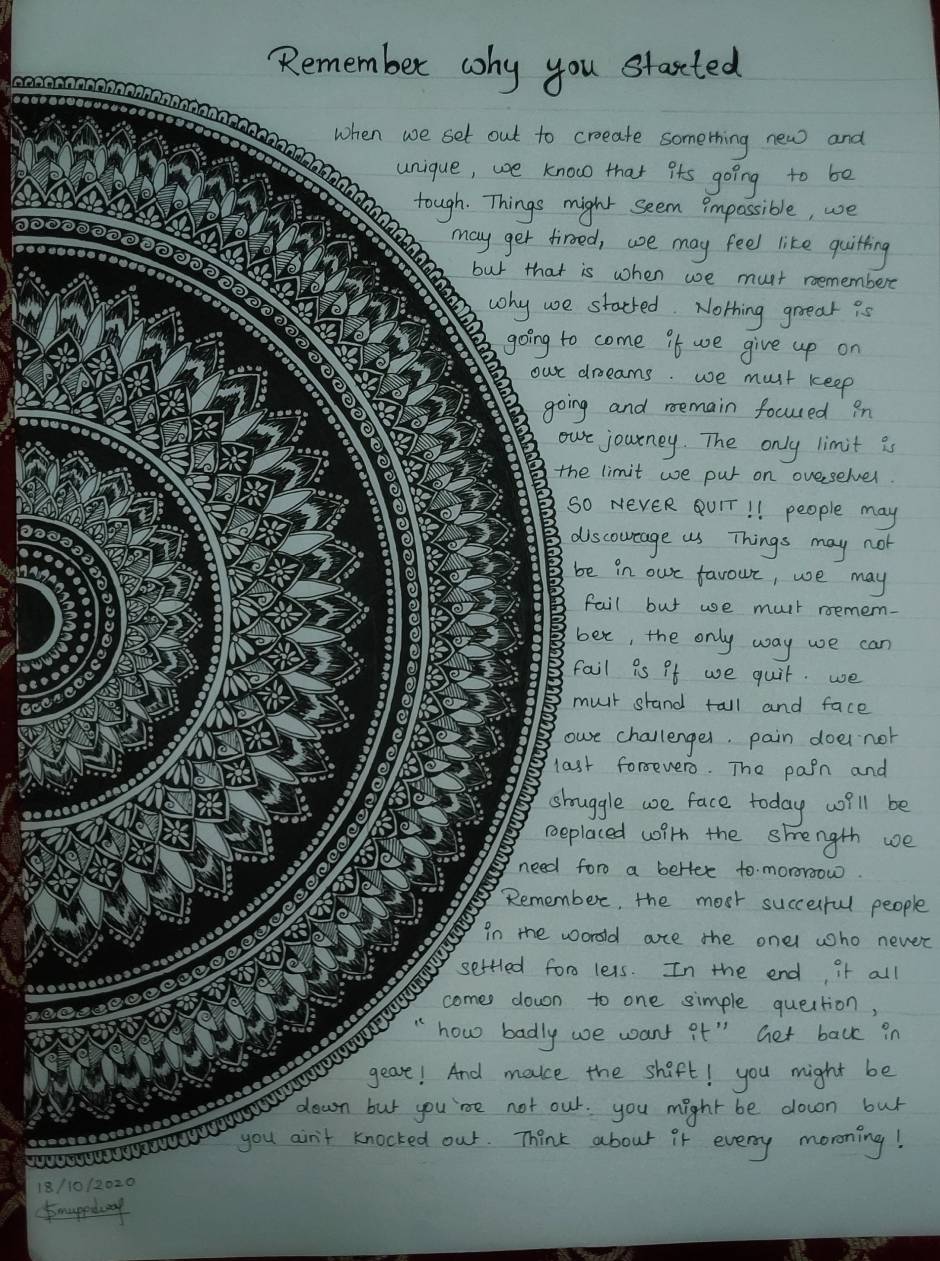 Remember why you started
When we set out to create something new and
unique, we know that its going to be
tough. Things might seem impossible, we
may get tired, we may feel like quitting
but that is when we must remember
why we started. Nothing great is
going to come if we give up on
our dreams. we must keep
going and remain focused in
our journey. The only limit is
the limit we put on ourselves.
SO NEVER QUIT !! people may
discourage us Things may not
be in our favour, we may
fail but we must remem-
ber, the only way we can
fail is if we quit. we
must stand tall and face
our challenges. pain does not
last forever. The pain and
struggle we face today will be
replaced with the strength we
need for a better tomorrow.
Remember, the most succesful people
in the world are the ones who never
settled for less. In the end, it all
comes down to one simple question,
"how badly we want it" Get back in
gear! And make the shift! you might be
down but you're not out. you might be down but
you ain't knocked out. Think about it every morning!
18/10/2020